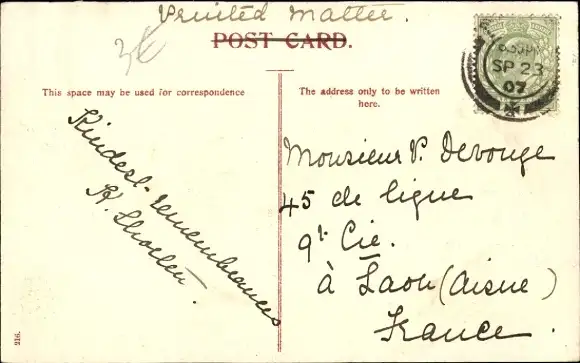 Printed Matter.
POST CARD.
3€
SP 23
07
This space may be used for correspondence
The address only to be written
here.
Kindest remembrances
Monsieur P. Devouge
45 de ligne
9e Cie.
à Laon (Aisne)
France.
216.